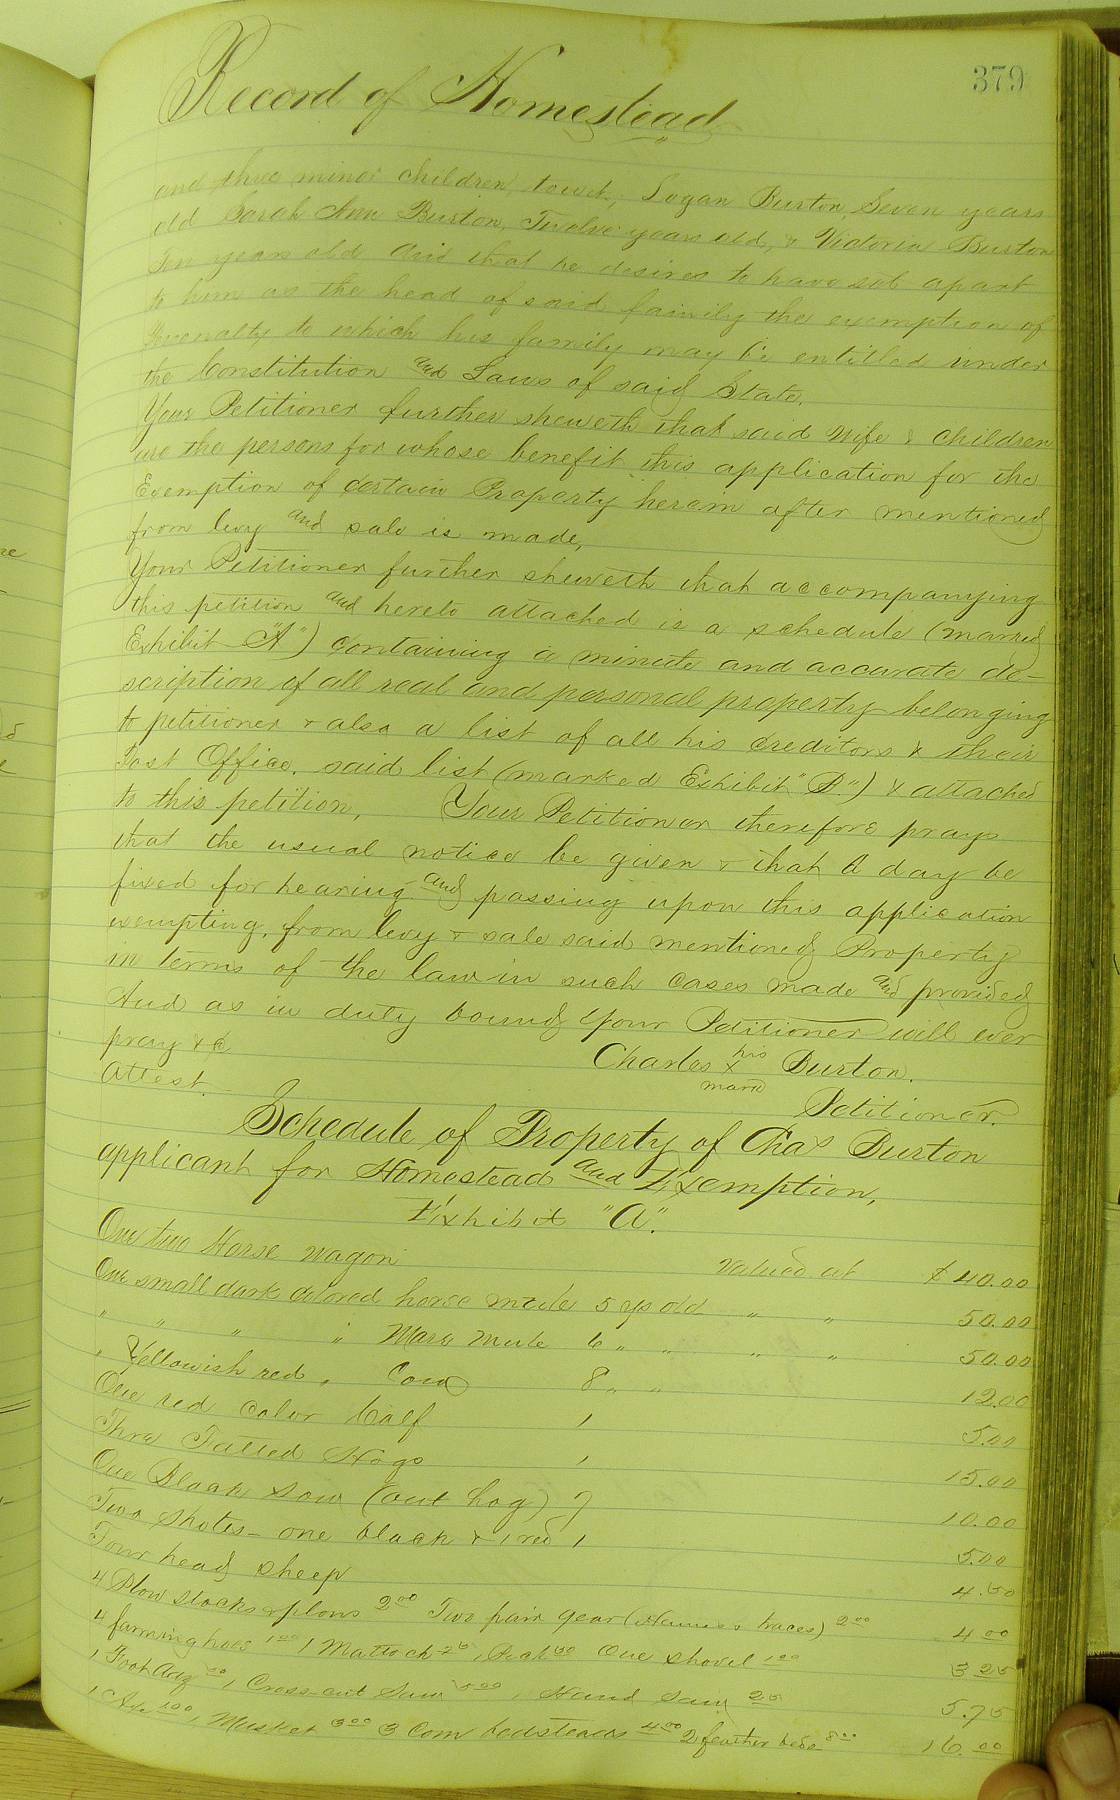 379
Record of Homestead
and three minor children towit, Logan Burton, Seven years
old Sarah Ann Burton, Twelve years old, & Victoria Burton
Ten years old And that he desires to have set apart
to him as the head of said family the exemption of
Personalty to which his family may be entitled under
the Constitution and Laws of said State.
Your Petitioner further sheweth that said wife & children
are the persons for whose benefit this application for the
Exemption of certain Property herein after mentioned
from levy and sale is made,
Your Petitioner further sheweth that accompanying
this petition and hereto attached is a schedule (marked
Exhibit "A") containing a minute and accurate de-
scription of all real and personal property belonging
to petitioner & also a list of all his creditors & their
Post Office, said list (marked Exhibit "B") & attached
to this petition, Your Petitioner therefore prays
that the usual notice be given & that a day be
fixed for hearing and passing upon this application
exempting, from levy & sale said mentioned Property
in terms of the law in such cases made and provided
And as in duty bound your Petitioner will ever
pray &c
Charles his x mark Burton.
attest. Petitioner.
Schedule of Property of Chas Burton
applicant for Homestead and Exemption,
Exhibit "A".
One two Horse wagon valued at $40.00
One small dark colored horse mule 5 yrs old " " 50.00
" " " " Mare Mule 6 " " " " 50.00
" Yellowish red " Cow 8 " " 12.00
One red color Calf 1 5.00
Three Fatted Hogs 1 15.00
One Black sow (out hog) 7 10.00
Two Shotes - one black & 1 red 1 5.00
Four head sheep 4.00
4 Plow stocks & plows 2 00 Two pair gear (Hames & traces) 2 00 4 00
4 farming hoes 1 00 1 Mattock 25 1 50 One shovel 1 00 3 25
1 Foot Adz 50 1 Cross-cut Saw 5 00 1 Hand Saw 25 5.75
1 Axe 1 00 1 Musket 3 00 3 Com bedsteads 4 00 2 feather beds 8 00 16. 00